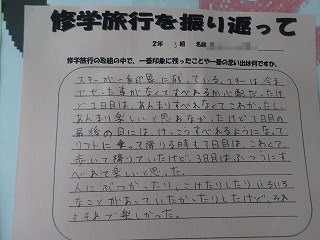 修学旅行を振り返って
2年 3組 名前
修学旅行の取組の中で、一番印象に残ったことや一番の思い出は何ですか。
スキーが一番印象に残っている。スキーは今ま
でやった事がなくてすべれるか心配だったけ
ど1日目は、あんまりすべれなくてこわかったし、
あんまり楽しいと思わなかったけど3日目の
最後の日には、けっこうすべれるようになって
リフトに乗って降りる時も1日目は、こわくて
歩いて降りていたけど、3日目はふつうにす
べれて楽しいと思った。
人にぶつかったり、こけたりしたりいろいろ
なことがあっていたかったりしたけど、それ
もそれで楽しかった。